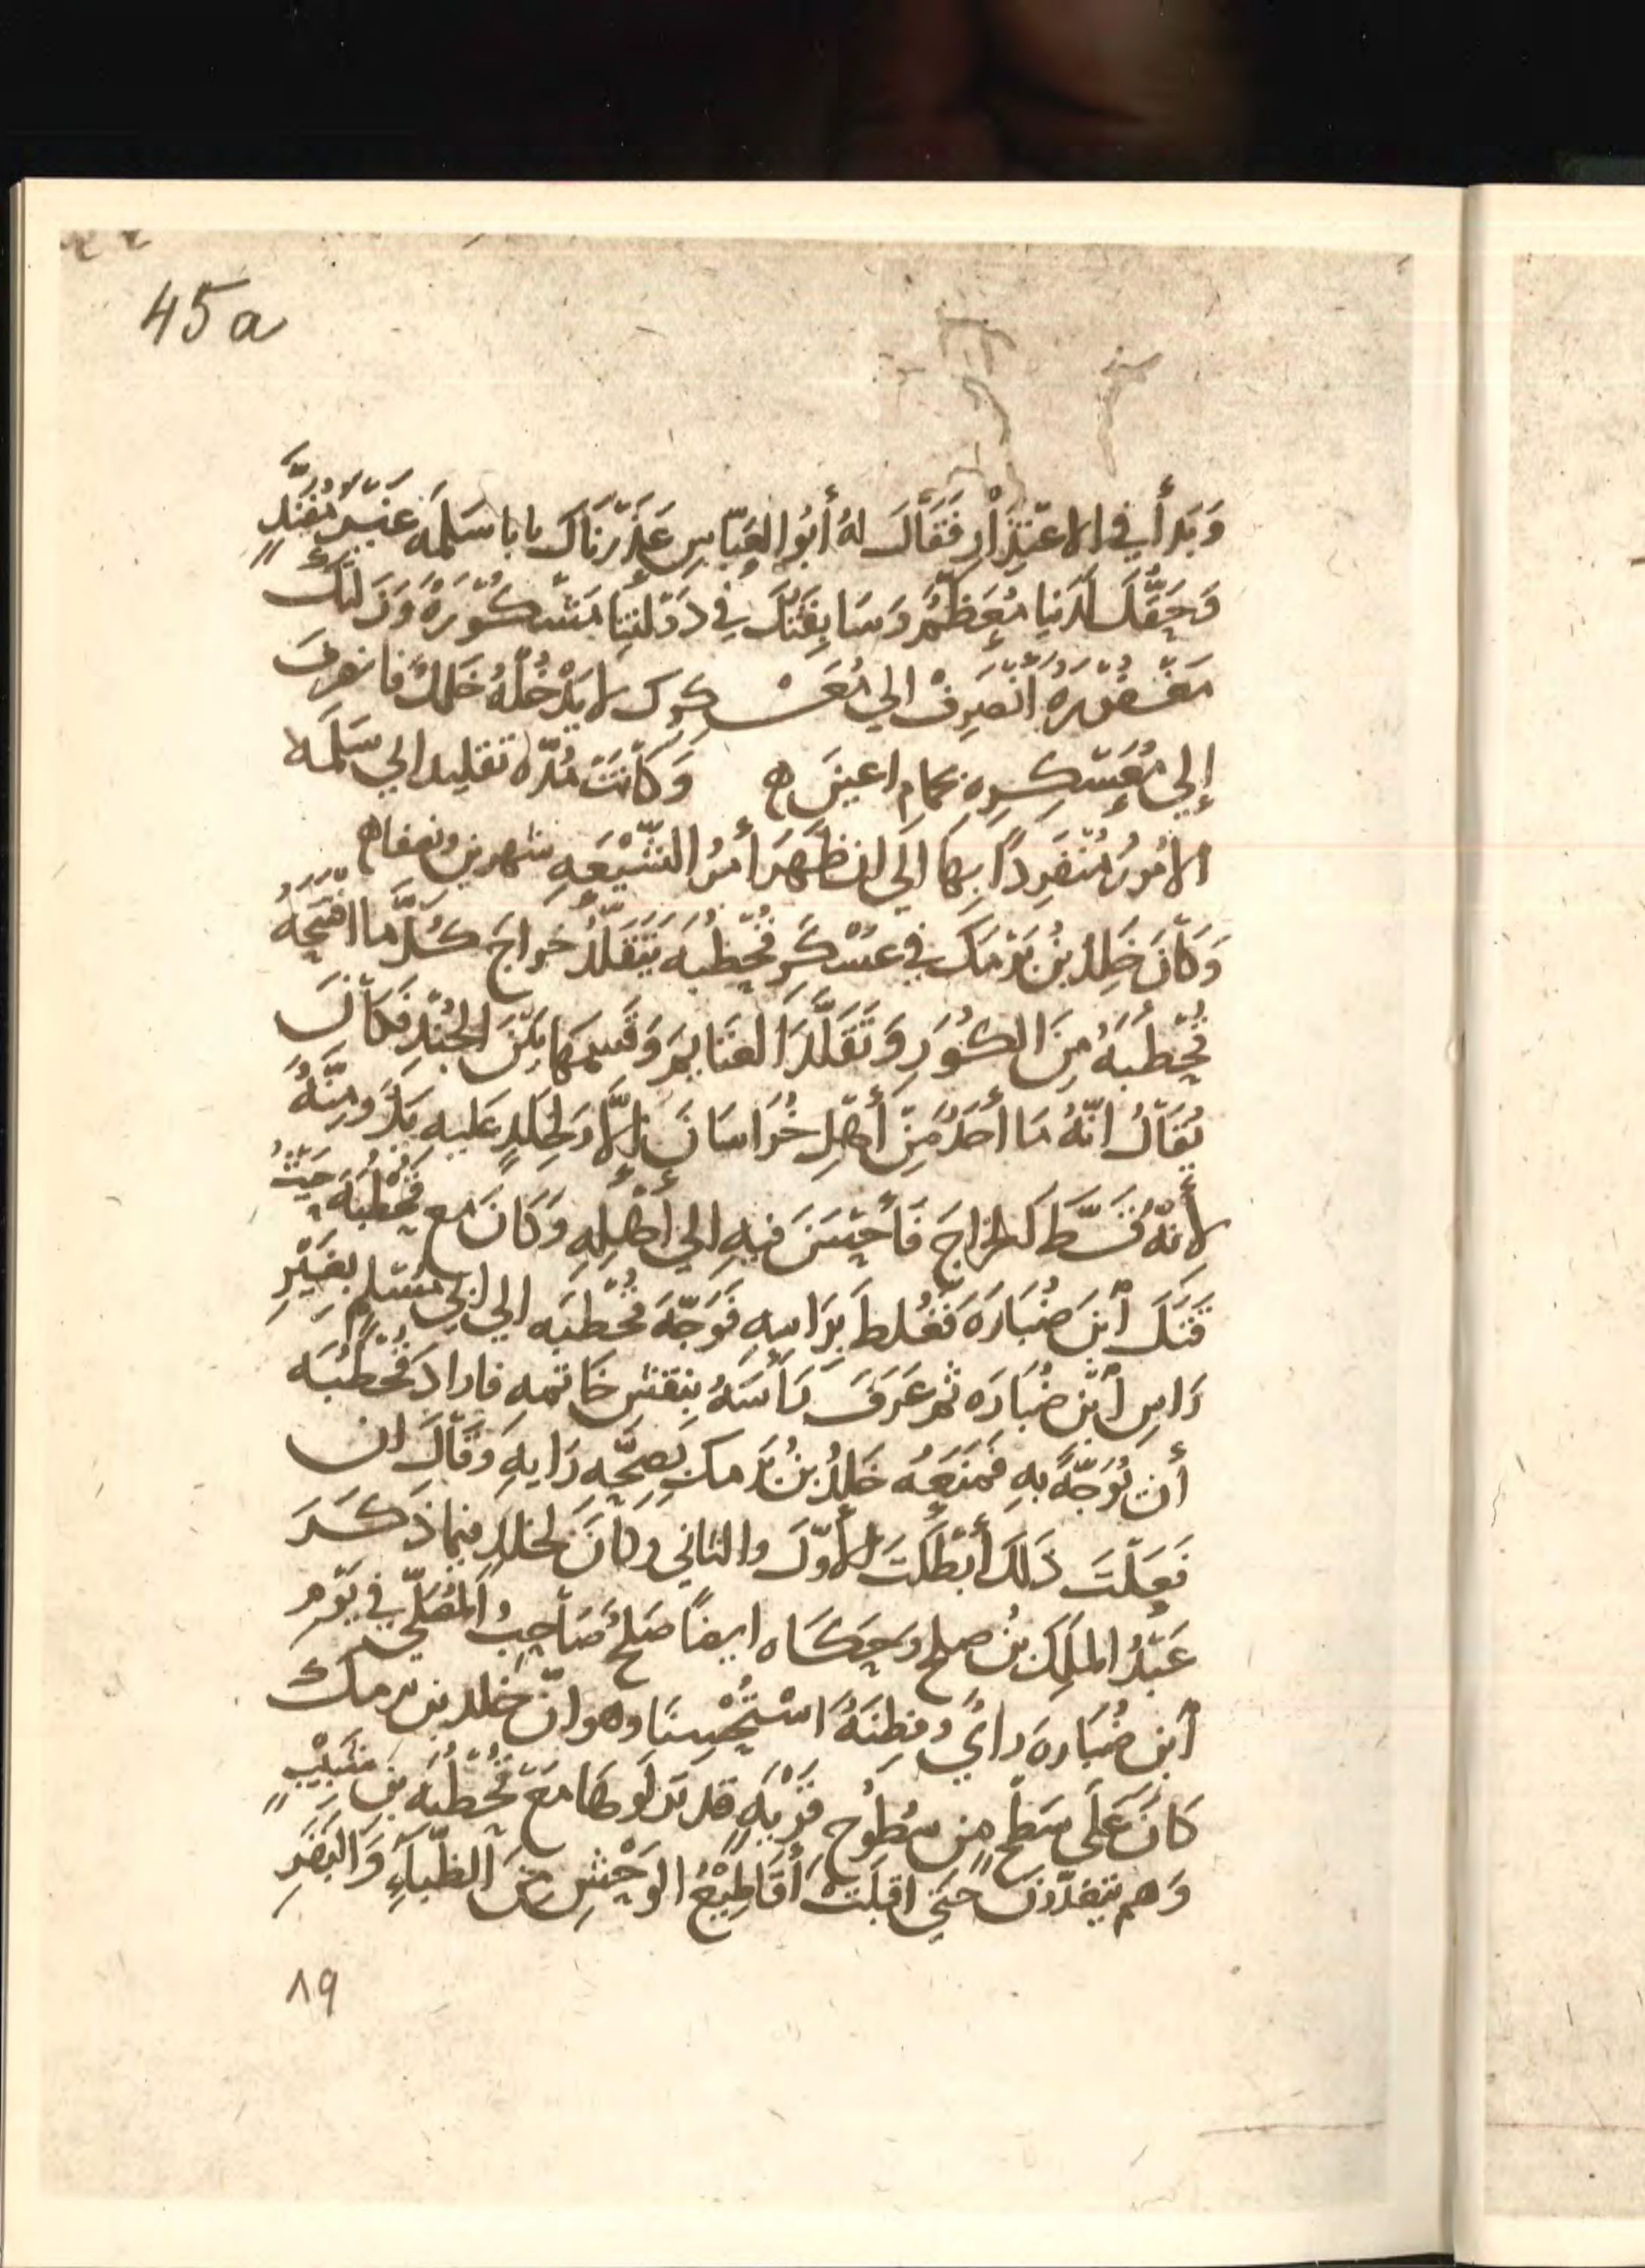 45a
وَبَدَأَ في الاعْتِذَارِ فَقَالَ لهُ أبُو العَبّاسِ عَذَرْنَاكَ يابا سَلَمَه غَيْرَ مُفَنَّدٍ
وَحَقُّكَ لَدَنيا مُعَظَّم وَسَابِقَتُكَ في دَوْلَتِنَا مَشْكُوْرَةٌ وَزَلَّتُكَ
مَغْفُوْرَه انْصَرِفْ الي مُعَسْكرِك لا يَدْخُلْهُ خَلَلٌ فانصرفَ
إلي مُعَسْكِرِه بحمام اعينَ ه وَكَانَتْ مُدّة تقليد ابي سَلَمَه
الامُورَ مُنْفَرِدًا بِهَا الَي ان ظَهَرَ أمْرُ الشِّيْعَهِ شهرين ونصفا ه
وَكَانَ خَلِدُ بنُ بَرْمَك في عَسْكَرِ قُحْطُبَه يَتَقَلَّدُ خَراجَ كُلَّمَا افتَتَحَهُ
قُحْطُبَهُ مِنَ الكُوَرِ وَتَقَلَّدَ الغنَايمَ وَقَسمَهَا بَيْنَ الجُنْدِ فَكَانَ
يُقَالُ انّهُ مَا أحَدٌ مِنْ أهْلِ خُرَاسَانَ إلَّا وَلِخَلِدٍ عَليهِ يَدٌ وَمِنَّهٌ
لأنّهُ قَسَّطَ الخراجَ فَأحْسَنَ فيهِ الي أهْلِهِ وَكَانَ مع قُحْطُبَهَ حَيْثُ
قَتَلَ ابْنَ ضُبَارَهَ فَغُلط بِرَاسِهِ فَوَجَّهَ قُحْطُبَه الي ابي مُسْلم بغَيْرِ
رَاسِ ابْنِ ضُبَارَه ثم عَرَفَ رَأسَهُ بنقش خاتمه فارادَ قُحْطُبَه
أن يُوَجِّهَ بهِ فَمَنَعَهُ خَلِدُ بنُ بَرْمك بِصِحَّهِ رَايهِ وَقَالَ ان
فَعَلْتَ ذَلكَ أبْطَلْتَ الأوّلَ والثاني وكانَ لخلدٍ فيما ذكَرَ
عَبْدُ المَلِكَ بنُ صلح وَحكاه ايضًا صَلحُ صَاحِبُ المُصَلّي في يَوْم
ابن ضُبَارهَ رايٌ وفِطِنَهٌ اسْتُحْسِنَا وهو انّ خلد بن برمك
كانَ عَلَي سَطْحٍ مِن سُطُوحِ قَرْيَهٍ قد نَزلُوهَا مَعَ قُحْطُبَه بن شَبِيْبٍ
وَهم يتغدّونَ حَتَّي اقبَلَتْ أقَاطِيْعُ الوَحْشِ مِنَ الظّبَاءِ وَالبَقَرِ
٨٩